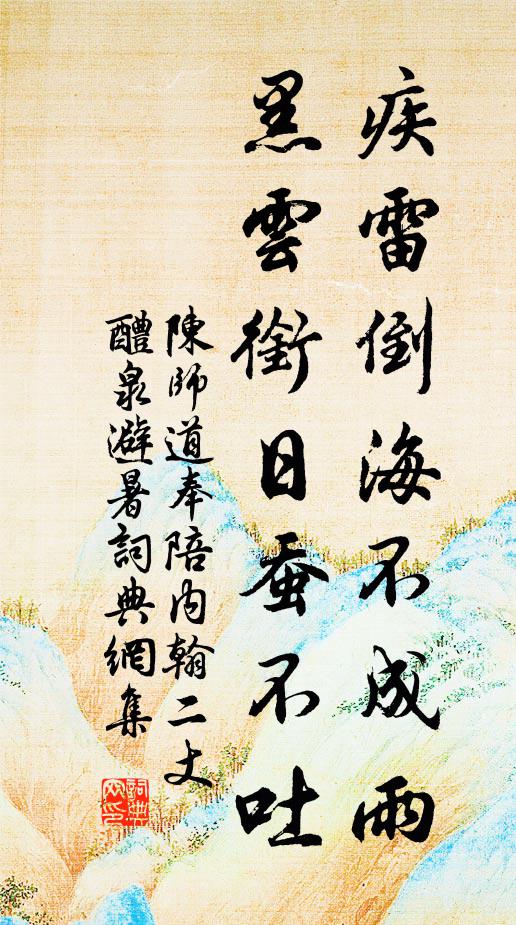 疾雷倒海不成雨
黑雲銜日蚕不吐
陳師道奉陪内翰二丈
醴泉避暑詞典網集
詞典
网印